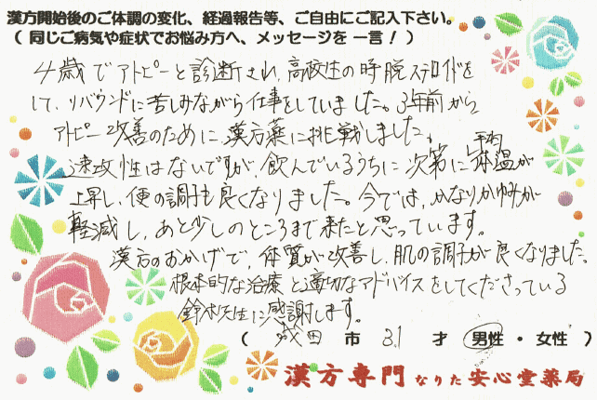 漢方開始後のご体調の変化、経過報告等、ご自由にご記入下さい。
( 同じご病気や症状でお悩み方へ、メッセージを 一言！ )
4歳でアトピーと診断され、高校生の時脱ステロイドを
して、リバウンドに苦しみながら仕事をしていました。3年前から
アトピー改善のために漢方薬に挑戦しました。
速攻性はないですが、飲んでいるうちに次第に平均体温が
上昇し、便の調子も良くなりました。今では、かなりかゆみが
軽減し、あと少しのところまで来たと思っています。
漢方のおかげで、体質が改善し、肌の調子が良くなりました。
根本的な治療と適切なアドバイスをしてくださっている
鈴木先生に感謝します。
( 成田 市 31 才 男性・女性 )
漢方専門 なりた 安心堂薬局